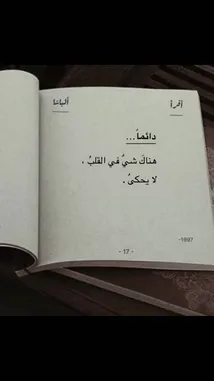 أقرأ
ألياعا
دائماً...
هناك شيُ في القلبُ ،
لا يحكىُ .
-1997
- 17 -